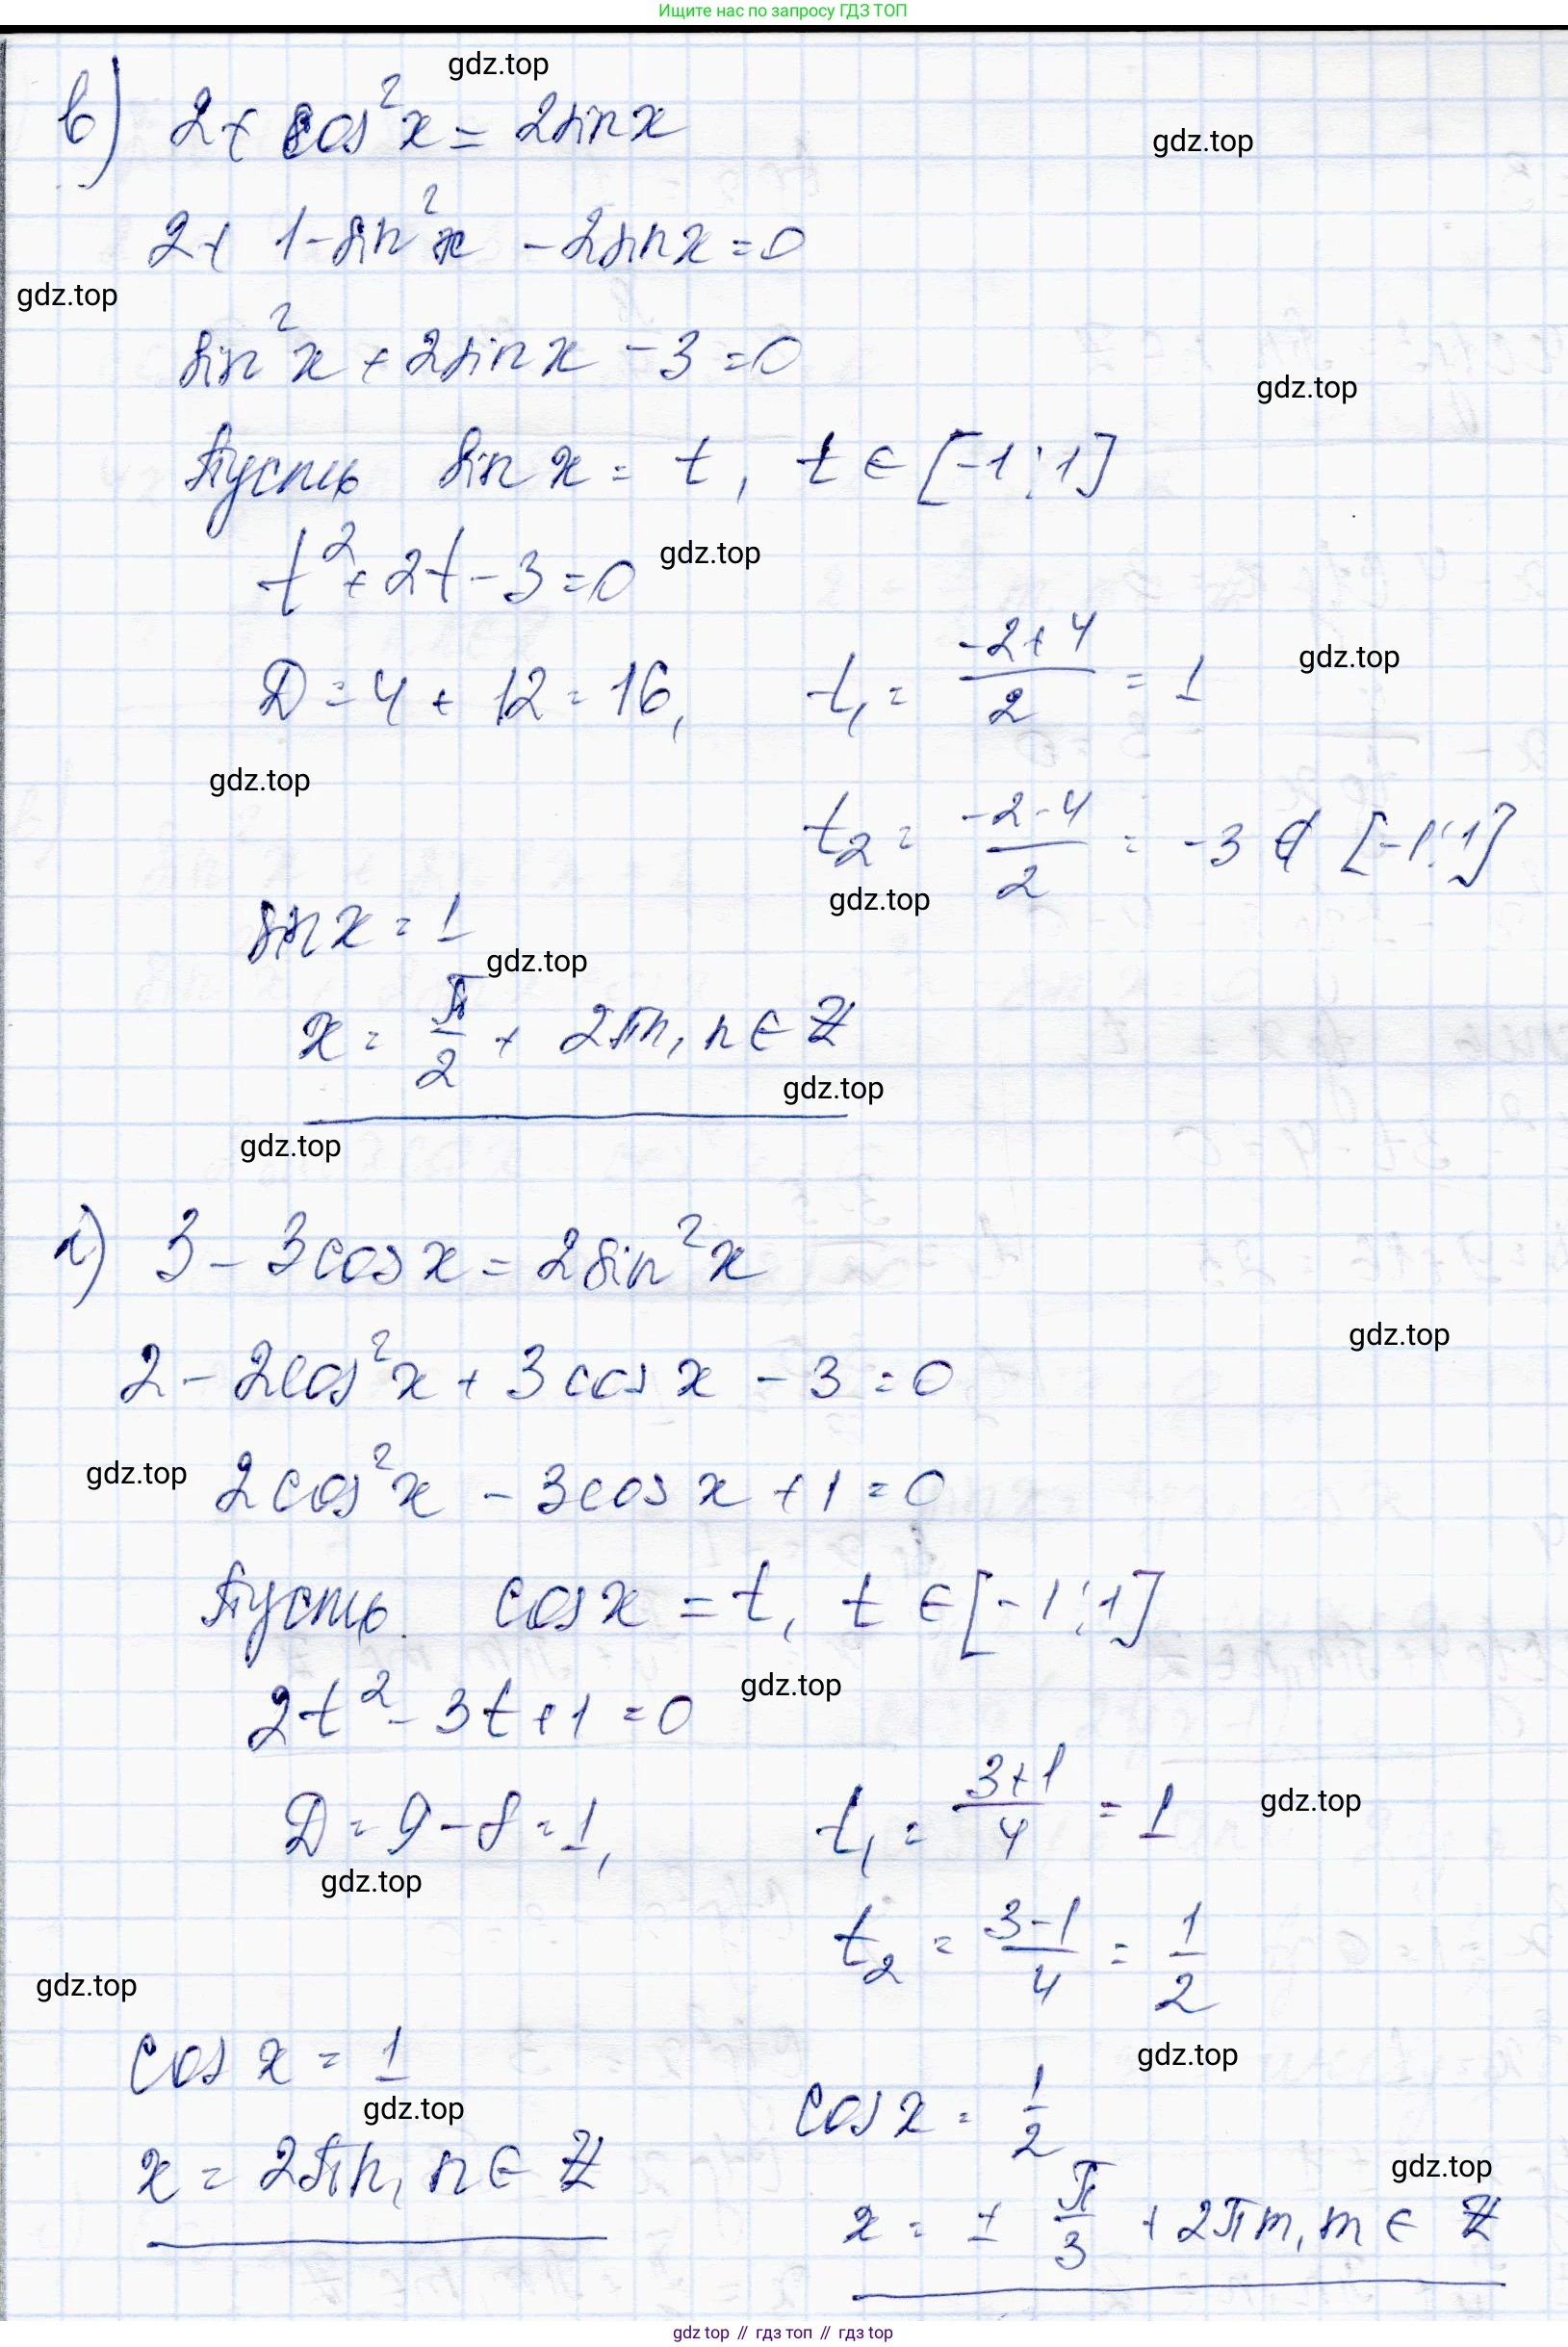 Ищите нас по запросу ГДЗ ТОП
gdz.top
в) 2 + cos²x = 2sinx
gdz.top
2 + 1 - sin²x - 2sinx = 0
gdz.top
sin²x + 2sinx - 3 = 0
gdz.top
Пусть sin x = t, t ∈ [-1; 1]
t² + 2t - 3 = 0
gdz.top
D = 4 + 12 = 16, t₁ = (-2+4)/2 = 1
gdz.top
gdz.top
t₂ = (-2-4)/2 = -3 ∉ [-1; 1]
gdz.top
sin x = 1
gdz.top
x = π/2 + 2πn, n ∈ Z
gdz.top
gdz.top
г) 3 - 3cos x = 2sin²x
gdz.top
2 - 2cos²x + 3cos x - 3 = 0
gdz.top
2cos²x - 3cos x + 1 = 0
Пусть cos x = t, t ∈ [-1; 1]
gdz.top
2t² - 3t + 1 = 0
D = 9 - 8 = 1, t₁ = (3+1)/4 = 1
gdz.top
gdz.top
t₂ = (3-1)/4 = 1/2
gdz.top
cos x = 1
gdz.top
gdz.top
cos x = 1/2
x = 2πn, n ∈ Z
gdz.top
x = ± π/3 + 2πm, m ∈ Z
gdz top // гдз топ // гдз top